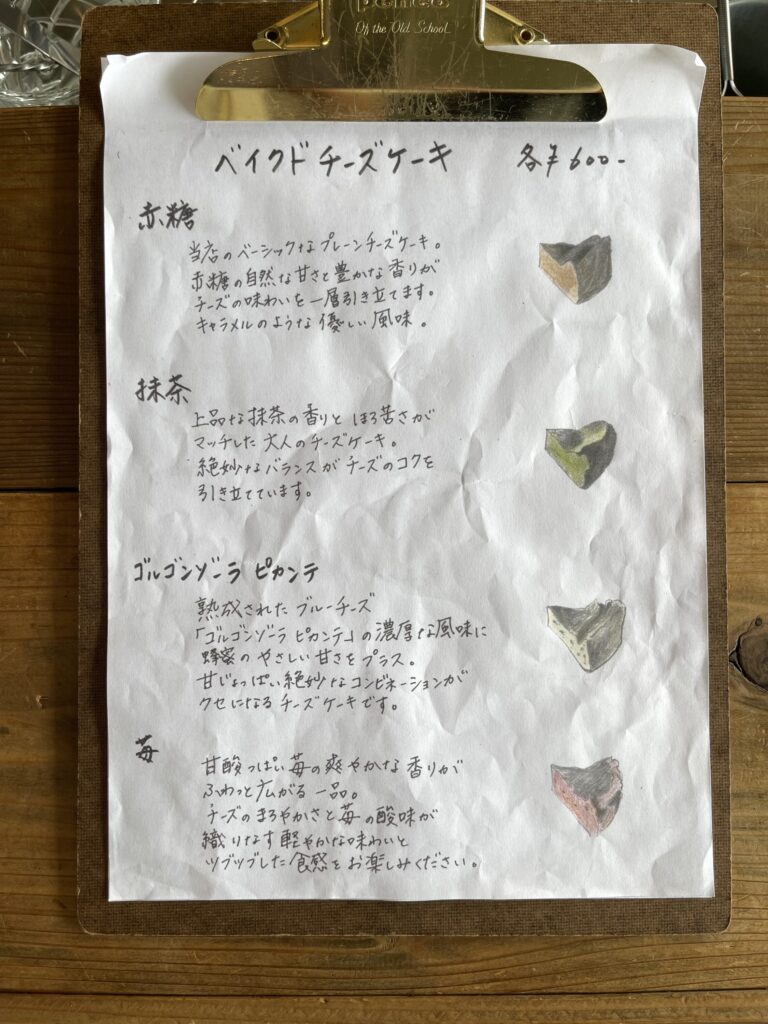 penco
Of the Old School
ベイクドチーズケーキ 各¥600-
赤糖
当店のベーシックなプレーンチーズケーキ。
赤糖の自然な甘さと豊かな香りが
チーズの味わいを一層引き立てます。
キャラメルのような優しい風味。
抹茶
上品な抹茶の香りとほろ苦さが
マッチした大人のチーズケーキ。
絶妙なバランスがチーズのコクを
引き立てています。
ゴルゴンゾーラ ピカンテ
熟成されたブルーチーズ
「ゴルゴンゾーラ ピカンテ」の濃厚な風味に
蜂蜜のやさしい甘さをプラス。
甘じょっぱい絶妙なコンビネーションが
クセになるチーズケーキです。
苺
甘酸っぱい苺の爽やかな香りが
ふわっと広がる一品。
チーズのまろやかさと苺の酸味が
織りなす軽やかな味わいと
ツブツブした食感をお楽しみください。